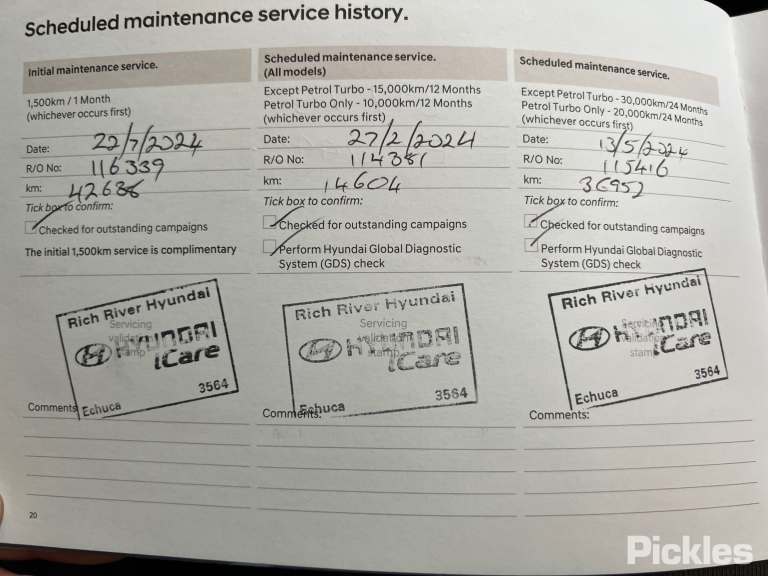 Scheduled maintenance service history.
Initial maintenance service.
1,500km / 1 Month
(whichever occurs first)
Date: 22/7/2024
R/O No: 116339
km: 42686
Tick box to confirm:
Checked for outstanding campaigns
The initial 1,500km service is complimentary
Rich River Hyundai
Servicing
validation
stamp
HYUNDAI
iCare
3564
Echuca
Comments:
Scheduled maintenance service.
(All models)
Except Petrol Turbo - 15,000km/12 Months
Petrol Turbo Only - 10,000km/12 Months
(whichever occurs first)
Date: 27/2/2024
R/O No: 114381
km: 14604
Tick box to confirm:
Checked for outstanding campaigns
Perform Hyundai Global Diagnostic
System (GDS) check
Rich River Hyundai
Servicing
validation
stamp
HYUNDAI
iCare
3564
Echuca
Comments:
Scheduled maintenance service.
Except Petrol Turbo - 30,000km/24 Months
Petrol Turbo Only - 20,000km/24 Months
(whichever occurs first)
Date: 13/5/2024
R/O No: 115416
km: 36952
Tick box to confirm:
Checked for outstanding campaigns
Perform Hyundai Global Diagnostic
System (GDS) check
Rich River Hyundai
Servicing
validation
stamp
HYUNDAI
iCare
3564
Echuca
Comments:
20
Pickles